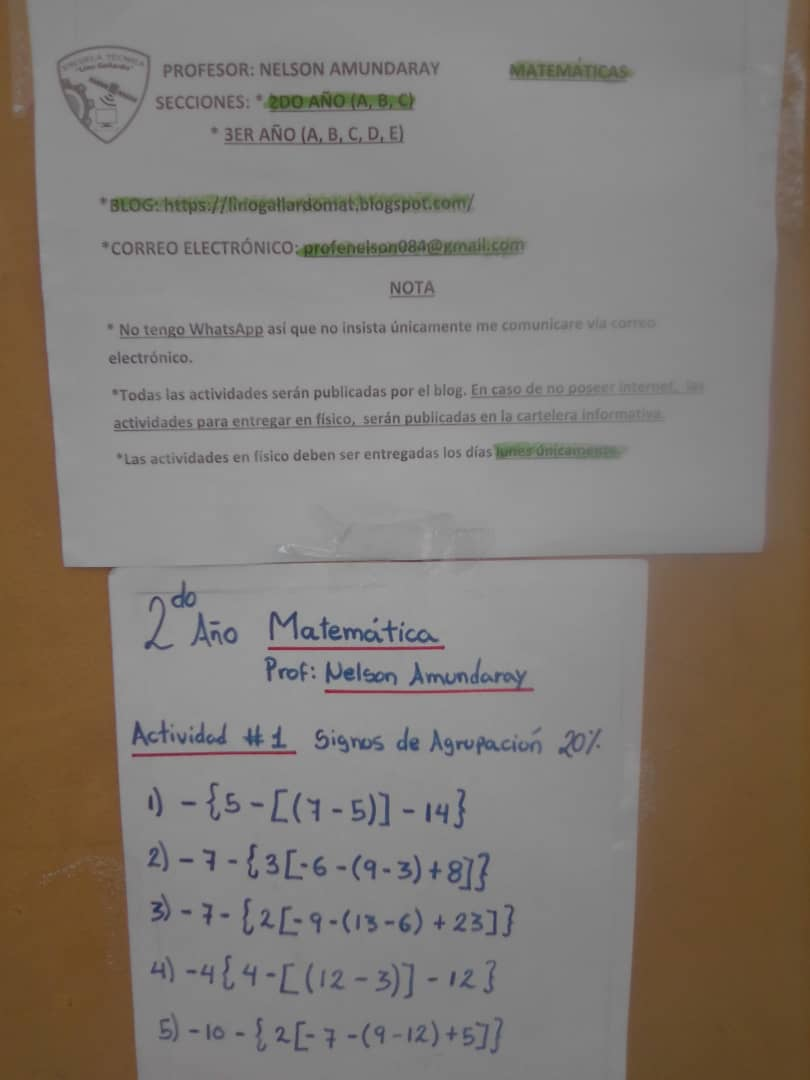 ESCUELA TÉCNICA
"Lino Gallardo"
PROFESOR: NELSON AMUNDARAY MATEMÁTICAS
SECCIONES: * 2DO AÑO (A, B, C)
* 3ER AÑO (A, B, C, D, E)
*BLOG: https://linogallardomat.blogspot.com/
*CORREO ELECTRÓNICO: profenelson084@gmail.com
NOTA
* No tengo WhatsApp así que no insista únicamente me comunicare vía correo
electrónico.
*Todas las actividades serán publicadas por el blog. En caso de no poseer internet, las
actividades para entregar en físico, serán publicadas en la cartelera informativa.
*Las actividades en físico deben ser entregadas los días lunes únicamente.
2do Año Matemática
Prof: Nelson Amundaray
Actividad #1 Signos de Agrupación 20%
1) - {5 - [(7 - 5)] - 14}
2) - 7 - {3[-6 - (9 - 3) + 8]}
3) - 7 - {2[-9 - (13 - 6) + 23]}
4) -4{4 - [(12 - 3)] - 12}
5) -10 - {2[-7 - (9 - 12) + 5]}